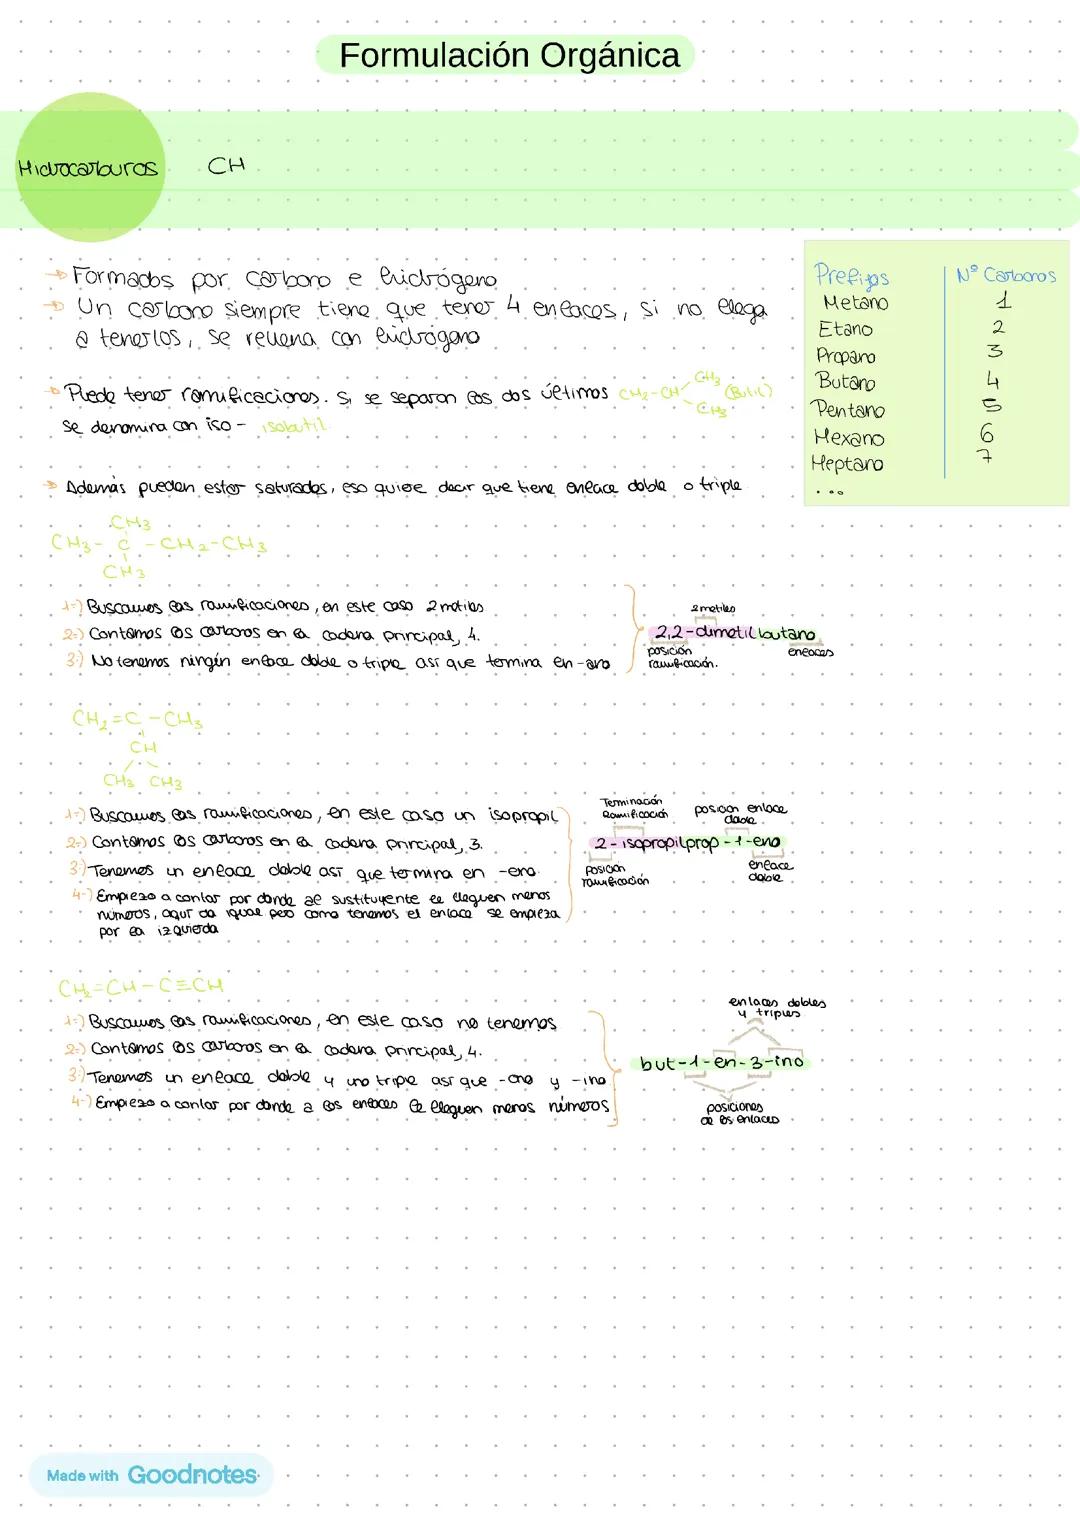 Formulación Orgánica
Hidrocarburos CH
→ Formados por carbono e hidrógeno
→ Un carbono siempre tiene que tener 4 enlaces, si no llega
a tenerlos, se rellena con hidrógeno
→ Puede tener ramificaciones. Si se separan los dos últimos CH2-CH CH3 CH3 (Butil)
se denomina con iso- isobutil
→ Además pueden estar saturados, eso quiere decir que tiene enlace doble o triple
Prefijos Nº Carbonos
Metano 1
Etano 2
Propano 3
Butano 4
Pentano 5
Hexano 6
Heptano 7
...
CH3
CH3-C-CH2-CH3
CH3
1-) Buscamos las ramificaciones, en este caso 2 metiles
2-) Contamos los carbonos en la cadena principal, 4.
3-) No tenemos ningún enlace doble o triple así que termina en -ano
2 metiles
2,2-dimetilbutano
posición
ramificación.
enlaces
CH2=C-CH3
CH
CH3 CH3
1-) Buscamos las ramificaciones, en este caso un isopropil
2-) Contamos los carbonos en la cadena principal, 3.
3-) Tenemos un enlace doble así que termina en -eno.
4-) Empiezo a contar por donde al sustituyente le lleguen menos
números, aquí da igual pero como tenemos el enlace se empieza
por la izquierda
Terminación
Ramificación
posición enlace
doble
2-isopropilprop-1-eno
Posición
ramificación
enlace
doble
CH2=CH-C≡CH
1-) Buscamos las ramificaciones, en este caso no tenemos
2-) Contamos los carbonos en la cadena principal, 4.
3-) Tenemos un enlace doble y uno triple así que -eno y -ino
4-) Empiezo a contar por donde a los enlaces le lleguen menos números
enlaces dobles
y triples
but-1-en-3-ino
posiciones
de los enlaces
Made with Goodnotes